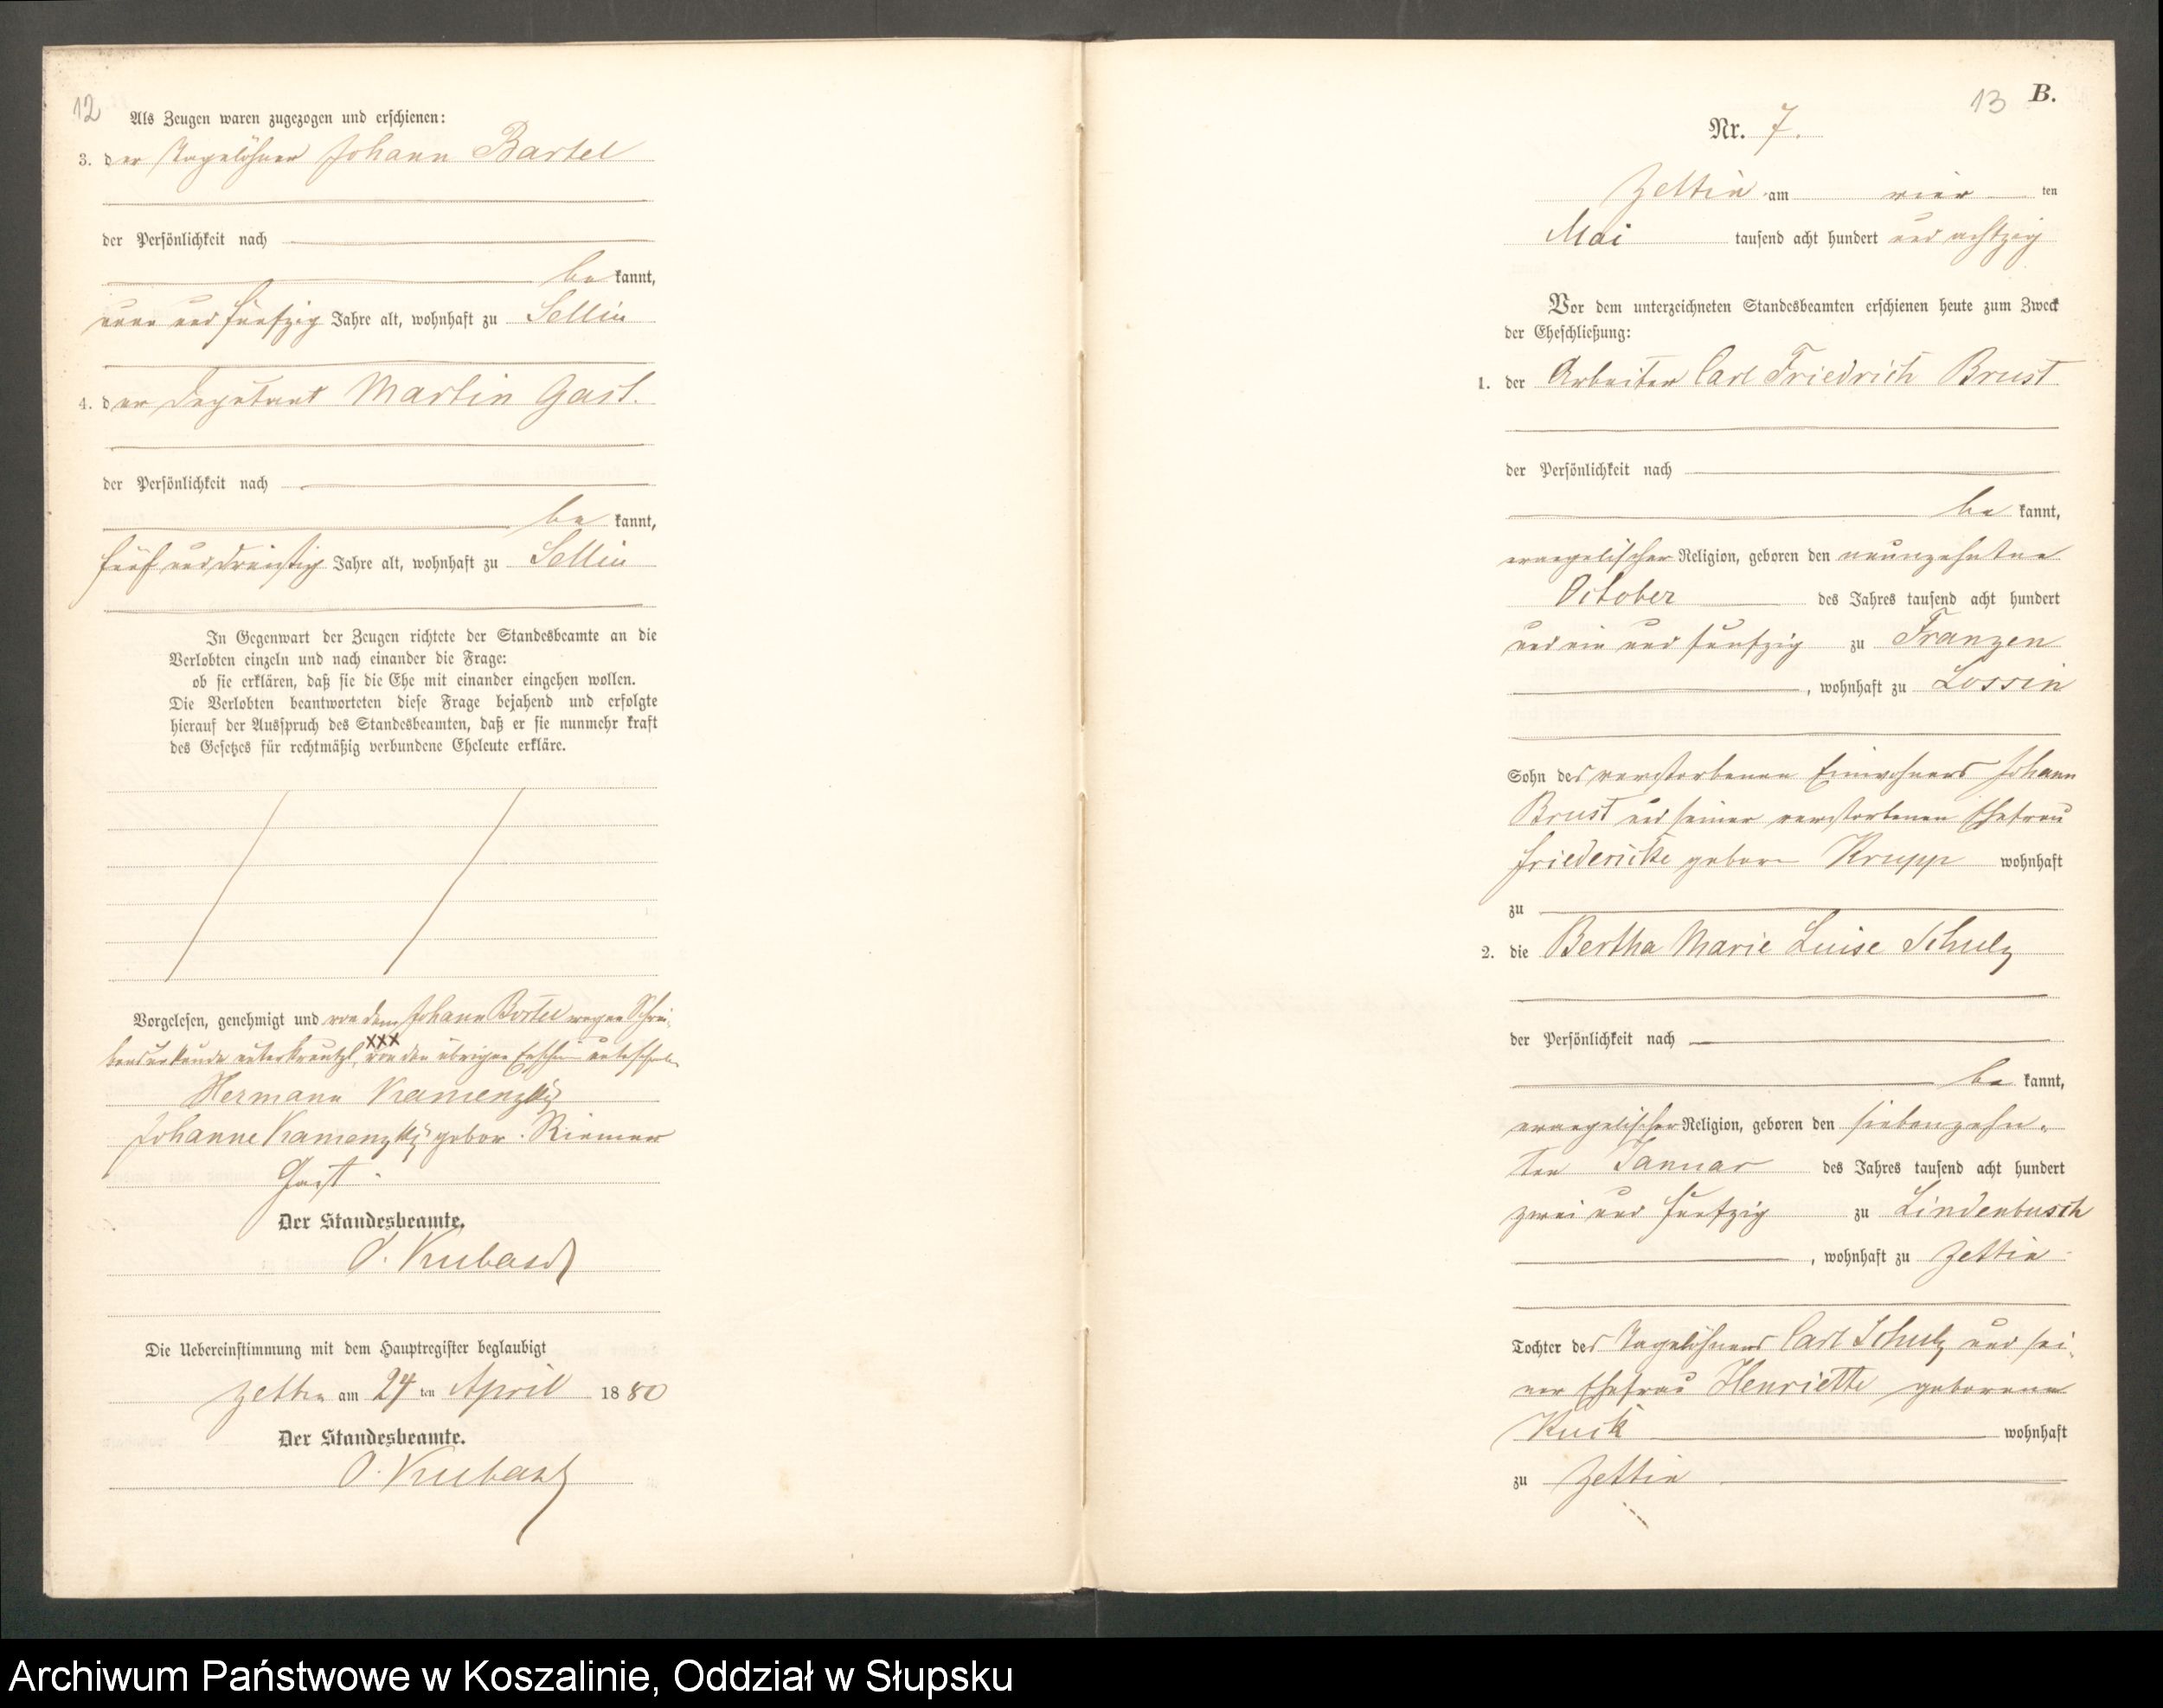 12
Als Zeugen waren zugezogen und erschienen:
3. der Tagelöhner Johann Bartel
der Persönlichkeit nach
be kannt,
neun und fünfzig Jahre alt, wohnhaft zu Sellin
4. der Deputant Martin Gast.
der Persönlichkeit nach
be kannt,
fünf und dreißig Jahre alt, wohnhaft zu Sellin
In Gegenwart der Zeugen richtete der Standesbeamte an die
Verlobten einzeln und nach einander die Frage:
ob sie erklären, daß sie die Ehe mit einander eingehen wollen.
Die Verlobten beantworteten diese Frage bejahend und erfolgte
hierauf der Ausspruch des Standesbeamten, daß er sie nunmehr kraft
des Gesetzes für rechtmäßig verbundene Eheleute erkläre.
Vorgelesen, genehmigt und von dem Johann Bartel wegen Schrei-
xxx
unterkreuzt, von den übrigen
Hermann Kamenzky
Johanne Kamenzky gebor. Riemer
Gast
Der Standesbeamte.
O. Kubasch
Die Uebereinstimmung mit dem Hauptregister beglaubigt
Zettin am 24 ten April 18 80
Der Standesbeamte.
O. Kubasch
13 B.
Nr. 7.
Zettin am vier ten
Mai tausend acht hundert und achtzig
Vor dem unterzeichneten Standesbeamten erschienen heute zum Zweck
der Eheschließung:
1. der Arbeiter Carl Friedrich Brust
der Persönlichkeit nach
be kannt,
evangelischer Religion, geboren den neunzehnten
October des Jahres tausend acht hundert
und ein und fünfzig zu Franzen
, wohnhaft zu Lossin
Sohn des verstorbenen Einwohners Johann
Brust und seiner verstorbenen Ehefrau
Friedericke geborn Krupp wohnhaft
zu
2. die Bertha Marie Luise Schulz
der Persönlichkeit nach
be kannt,
evangelischer Religion, geboren den siebenzehn-
ten Januar des Jahres tausend acht hundert
zwei und fünfzig zu Lindenbusch
, wohnhaft zu Zettin
Tochter des Tagelöhners Carl Schulz und sei-
ner Ehefrau Henriette geborene
Kuck wohnhaft
zu Zettin
Archiwum Państwowe w Koszalinie, Oddział w Słupsku